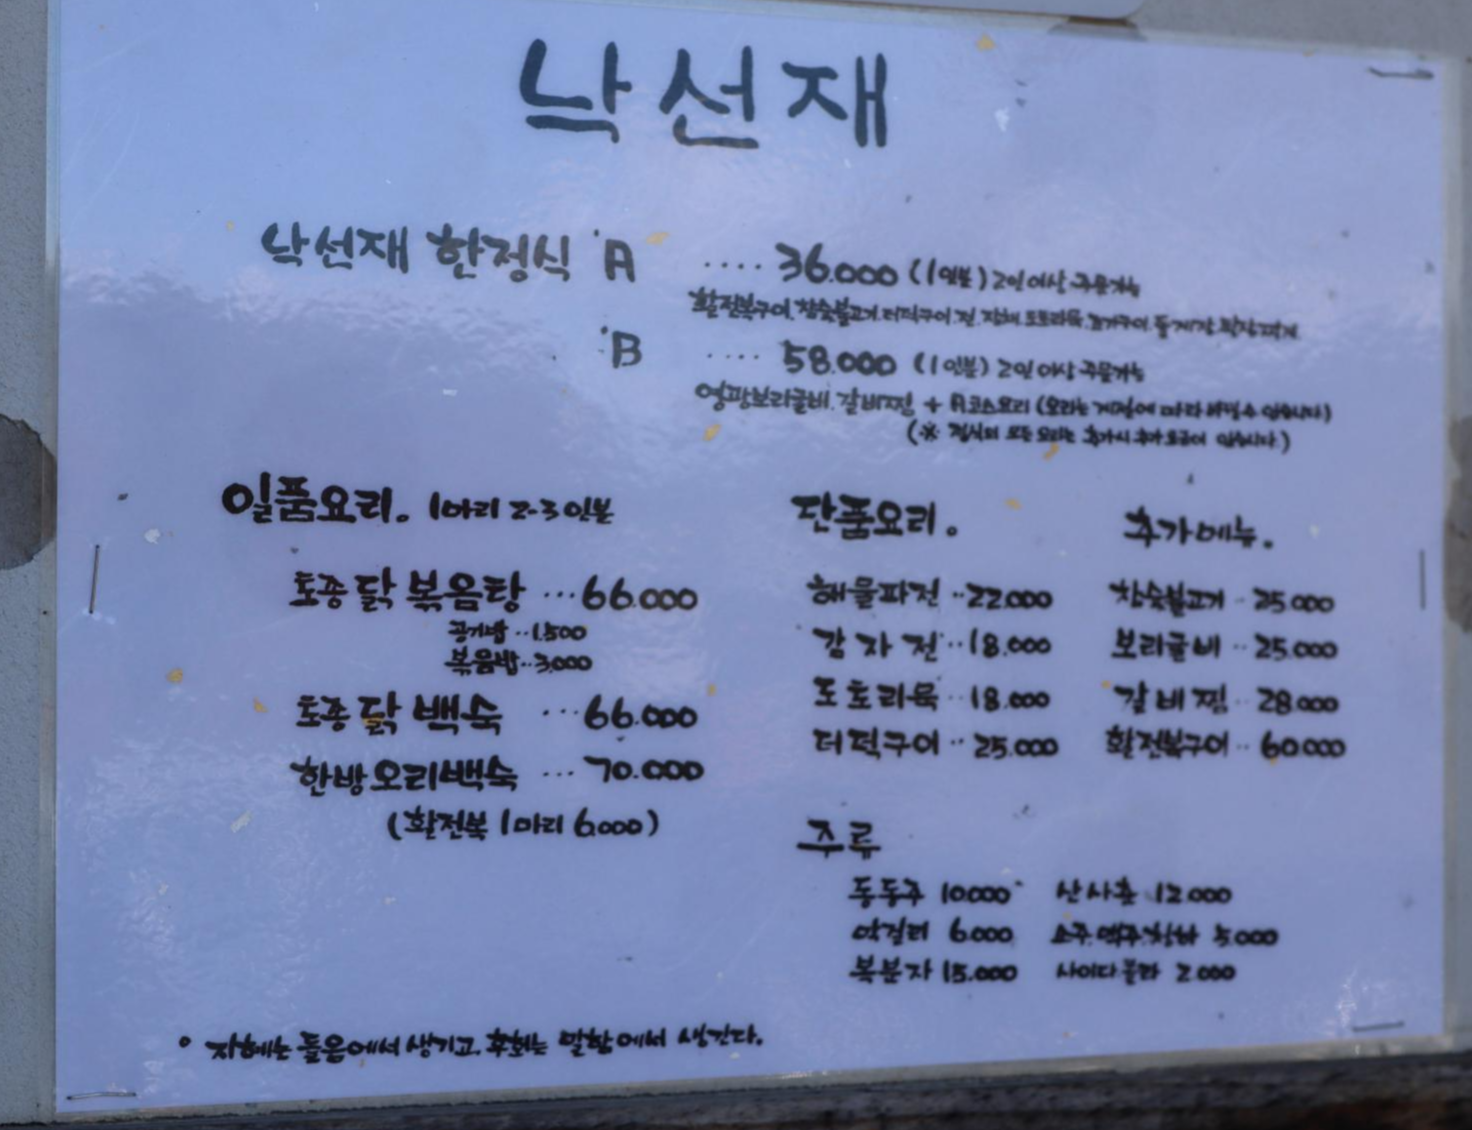 낙선재
낙선재 한정식 'A .... 36.000 (1인분) 2인이상 주문가능
활전복구이, 참숯불고기, 더덕구이, 전, 잡채, 도토리묵, 들게장
'B .... 58.000 (1인분) 2인이상 주문가능
영광보리굴비, 갈비찜 + A코스요리 (요리는 계절에 따라 변경될수 있습니다)
(※ 정식의 모든 요리는 추가시 추가요금이 있습니다)
일품요리. 1마리 2-3인분
토종닭 볶음탕 ...66.000
공기밥 ..1.500
볶음밥..3.000
토종닭 백숙 ...66.000
한방오리백숙 ... 70.000
(활전복 1마리 6.000)
단품요리.
해물파전 ..22.000
감자전 ..18.000
도토리묵 ..18.000
더덕구이 ..25.000
추가메뉴.
참숯불고기 ..25.000
보리굴비 ..25.000
갈비찜 ..28.000
활전복구이 ..60.000
주류
동동주 10.000 산사춘 12.000
막걸리 6.000 소주.맥주.청하 5.000
복분자 15.000 사이다 콜라 2.000
° 지혜는 들음에서 생기고, 후회는 말함에서 생긴다.